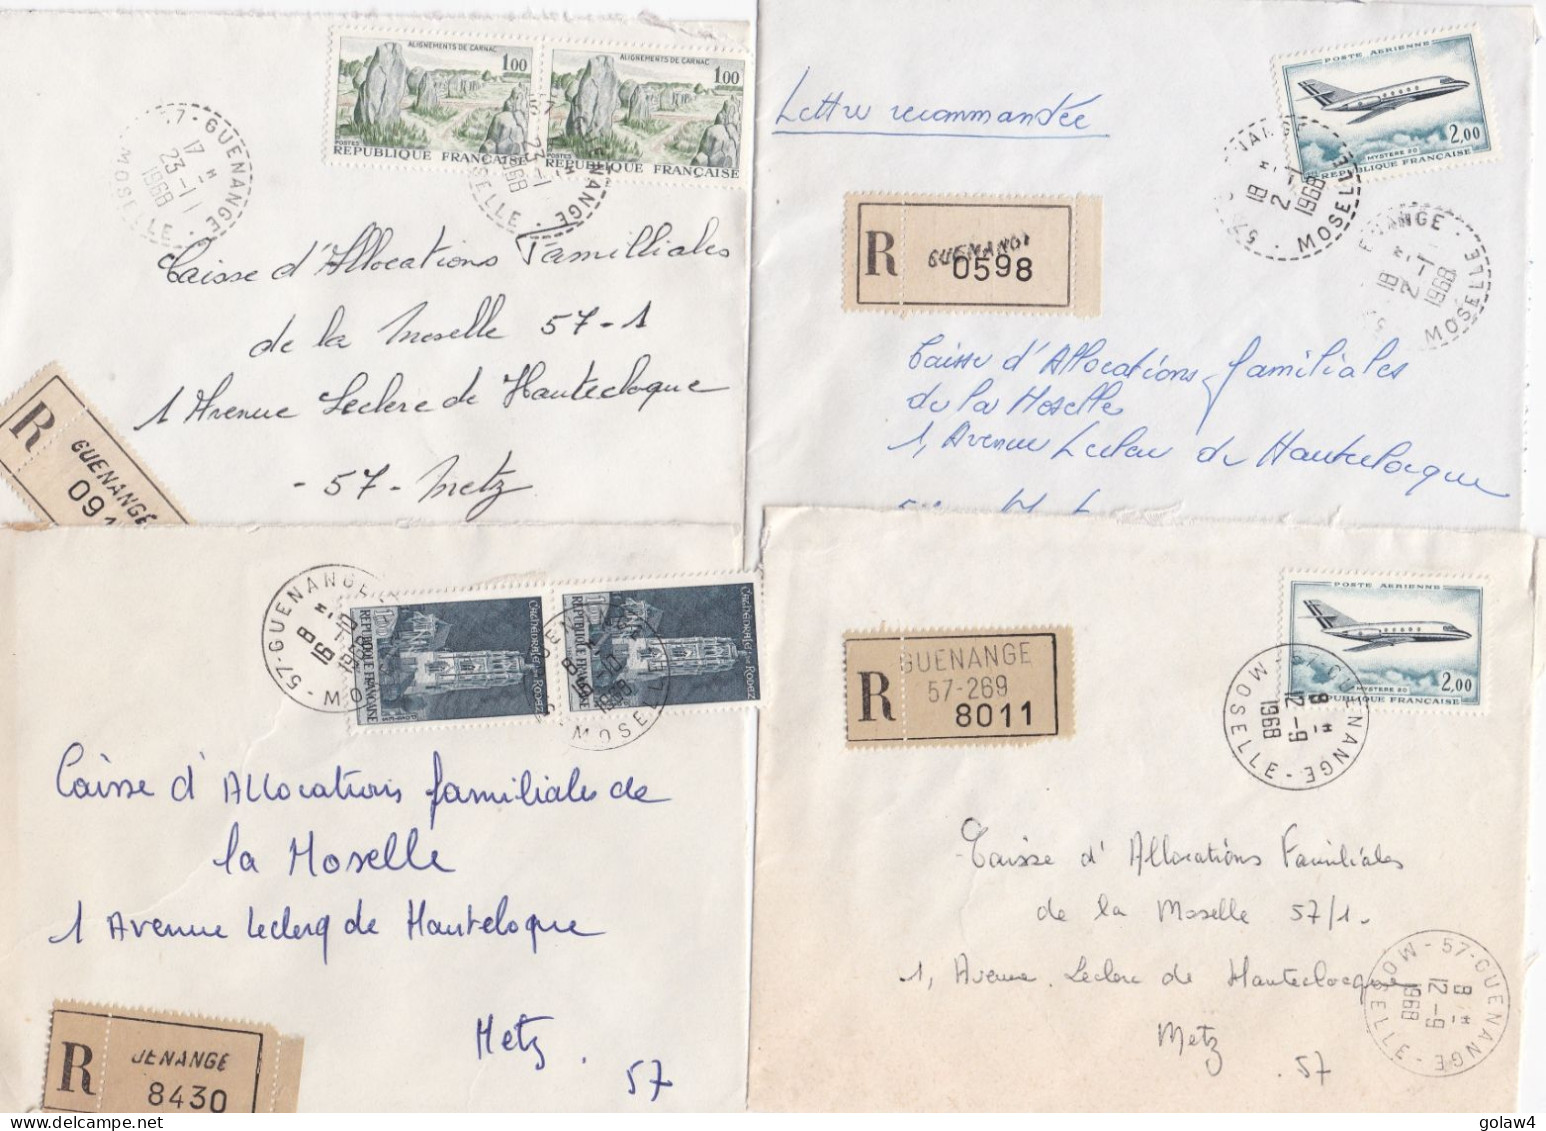 ALIGNEMENTS DE CARNAC
1,00
POSTES RÉPUBLIQUE FRANÇAISE
ALIGNEMENTS DE CARNAC
1,00
POSTES RÉPUBLIQUE FRANÇAISE
57-GUENANGE
17 H
23-1
1968
MOSELLE
GUENANGE
23-1
1968
MOSELLE
Caisse d'Allocations Familliales
de la Moselle 57-1
1 Avenue Leclerc de Hauteclocque
- 57 - Metz
R
GUENANGE
091
Lettre recommandée
POSTE AÉRIENNE
2,00
MYSTERE 20
RÉPUBLIQUE FRANÇAISE
18 H
2-1
1968
MOSELLE
57
ENANGE
18 H
2-1
1968
MOSELLE
R
GUENANGE
0598
Caisse d'Allocations familiales
de la Moselle
1, Avenue Leclerc de Hauteclocque
CATHÉDRALE DE RODEZ
RÉPUBLIQUE FRANÇAISE
CATHÉDRALE DE RODEZ
RÉPUBLIQUE FRANÇAISE
57-GUENANGE
8 H
16-10
1968
MOSELLE
1968
MOSELLE
Caisse d'Allocations familiales de
la Moselle
1 Avenue Leclerq de Hauteloque
Metz.
57
R
UENANGE
8430
POSTE AÉRIENNE
2,00
MYSTERE 20
RÉPUBLIQUE FRANÇAISE
57-GUENANGE
8 H
12-9
1968
MOSELLE
R
GUENANGE
57-269
8011
Caisse d'Allocations Familiales
de la Moselle 57/1.
1, Avenue Leclerc de Hauteclocque
Metz
. 57
57-GUENANGE
8 H
12-9
1968
MOSELLE
golaw4